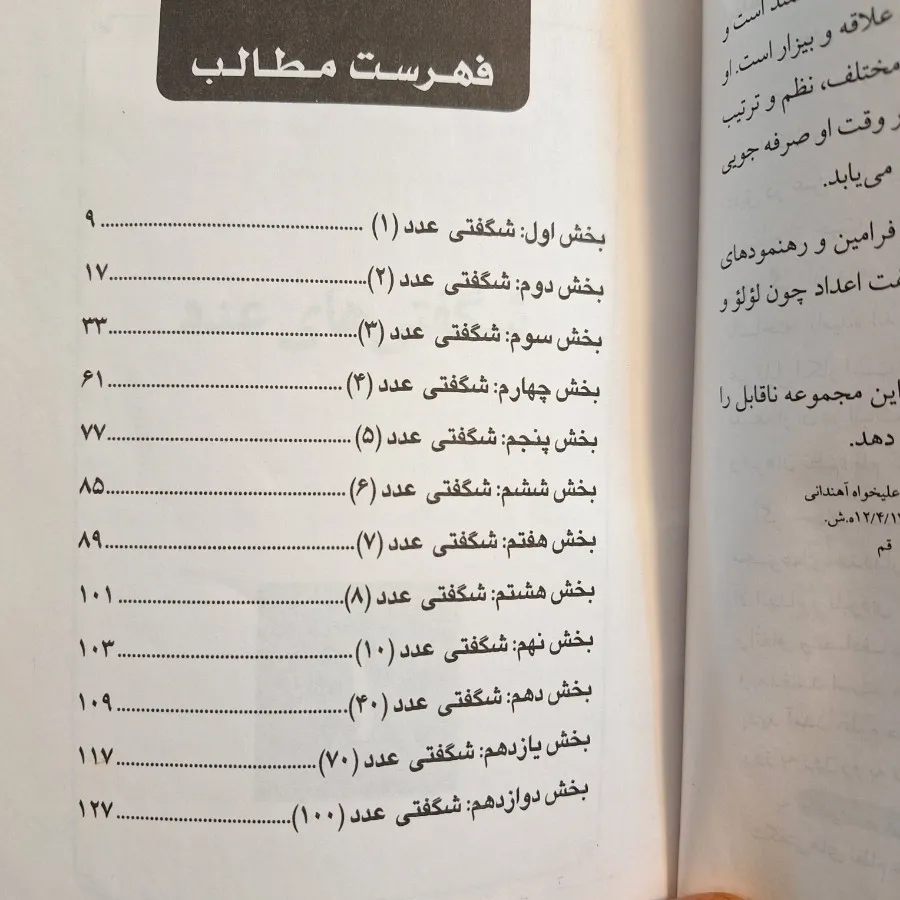 فهرست مطالب
بخش اول: شگفتی عدد (۱) ........ ۹
بخش دوم: شگفتی عدد (۲) ........ ۱۷
بخش سوم: شگفتی عدد (۳) ........ ۳۳
بخش چهارم: شگفتی عدد (۴) ........ ۶۱
بخش پنجم: شگفتی عدد (۵) ........ ۷۷
بخش ششم: شگفتی عدد (۶) ........ ۸۵
بخش هفتم: شگفتی عدد (۷) ........ ۸۹
بخش هشتم: شگفتی عدد (۸) ........ ۱۰۱
بخش نهم: شگفتی عدد (۱۰) ........ ۱۰۳
بخش دهم: شگفتی عدد (۴۰) ........ ۱۰۹
بخش یازدهم: شگفتی عدد (۷۰) ........ ۱۱۷
بخش دوازدهم: شگفتی عدد (۱۰۰) ........ ۱۲۷
است و
علاقه و بیزار است. او
مختلف، نظم و ترتیب
وقت او صرفه جویی
می‌یابد.
فرامین و رهنمودهای
اعداد چون لؤلؤ و
این مجموعه ناقابل را
دهد.
علیخواه آهندانی
۱۲/۴/۱۲ه.ش.
قم